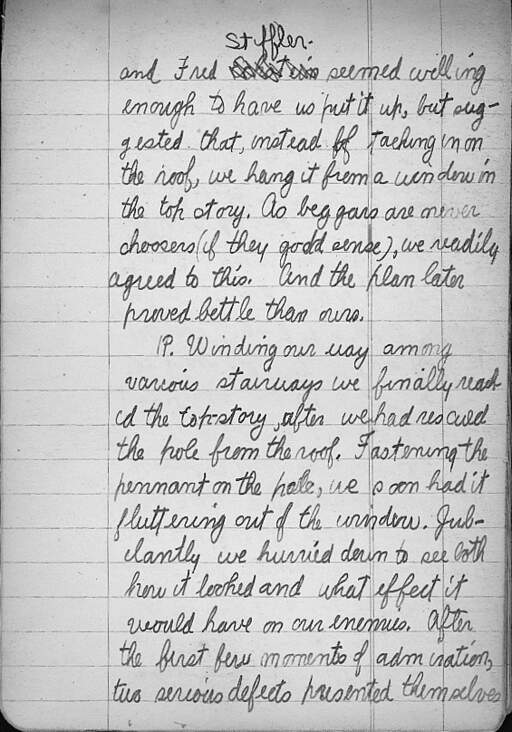 Stiffler.
and Fred seemed willing
enough to have us put it up, but sug-
gested that, instead of tacking in on
the roof, we hang it from a window in
the top story. As beggars are never
choosers (if they good sense), we readily
agreed to this. And the plan later
proved bettle than ours.
P. Winding our way among
various stairways we finally reach
ed the top-story, after we had rescued
the pole from the roof. Fastening the
pennant on the pole, we soon had it
fluttering out of the window. Jub-
ilantly we hurried down to see both
how it looked and what effect it
would have on our enemies. After
the first few moments of admiration,
two serious defects presented themselves